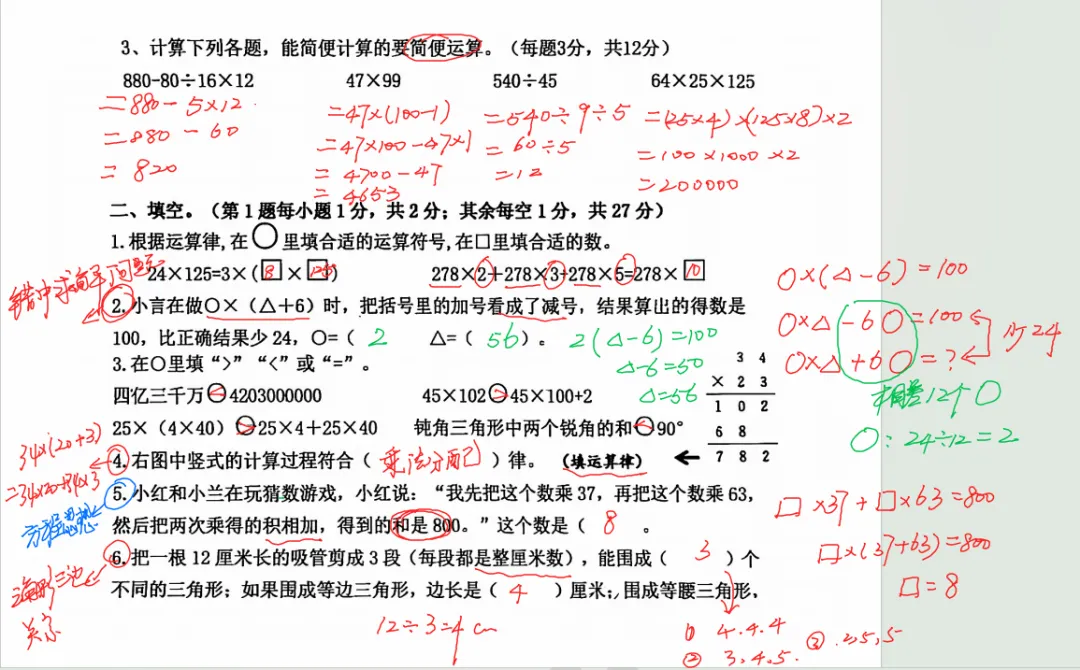 3、计算下列各题，能简便计算的要简便运算。（每题3分，共12分）
880-80÷16×12 47×99 540÷45 64×25×125
=880-5×12 =47×(100-1) =540÷9÷5 =(25×4)×(125×8)×2
=880-60 =47×100-47×1 =60÷5 =100×1000×2
=820 =4700-47 =12 =200000
=4653
二、填空。（第1题每小题1分，共2分；其余每空1分，共27分）
1.根据运算律,在○里填合适的运算符号,在□里填合适的数。
24×125=3×(8×125) 278×2+278×3+278×5=278×10
○×(△-6)=100
2.小言在做○×（△+6）时，把括号里的加号看成了减号，结果算出的得数是
○×△-6○=100
少24
100，比正确结果少 24，○=（ 2 ） △=（ 56 ）。
2(△-6)=100
△-6=50
△=56
○×△+6○=?
相差12个○
○:24÷12=2
3.在○里填“>”“<”或“=”。
四亿三千万 4203000000 45×102>45×100+2
25×（4×40）>25×4+25×40 钝角三角形中两个锐角的和<90°
3 4
× 2 3
1 0 2
6 8
7 8 2
34×(20+3)
=34×20+34×3
4.右图中竖式的计算过程符合（ 乘法分配 ）律。（填运算律）←
5.小红和小兰在玩猜数游戏，小红说：“我先把这个数乘 37，再把这个数乘 63，
然后把两次乘得的积相加，得到的和是 800。”这个数是（ 8 ） 。
□×37+□×63=800
□×(37+63)=800
□=8
6.把一根 12 厘米长的吸管剪成 3 段（每段都是整厘米数），能围成（ 3 ）个
不同的三角形；如果围成等边三角形，边长是（ 4 ）厘米；围成等腰三角形，
三边
关系
12÷3=4cm
① 4.4.4
② 3.4.5.
③ 2,5,5